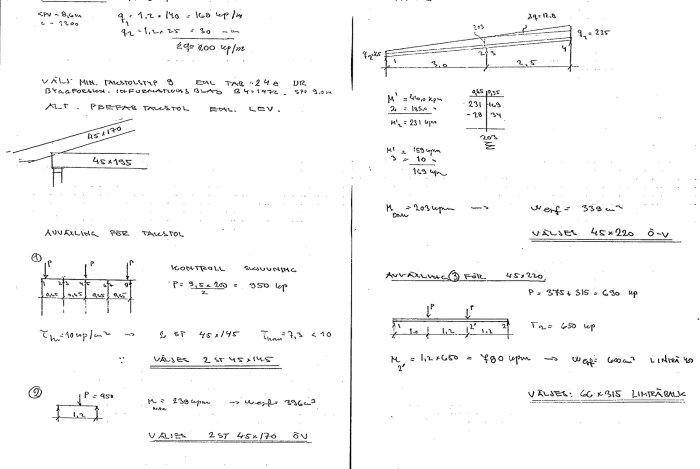 SPV = 8,6m
c = 1200
q₁ = 1,2 × 140 = 160 kp/m
q₂ = 1,2 × 25 = 30 -"-
Σq = 200 kp/m
VÄLJ MIN. TAKSTOLSTYP 9 ENL TAB = 24 e UR
BYGGFORSKN. INFORMATIONSBLAD B4:1972. SPV 9.0m
ALT. PREFAB TAKSTOL ENL. LEV.
45×170
45×195
AVVÄXLING FÖR TAKSTOL
①
P P P
KONTROLL SKJUVNING
P = 9,5×200/2 = 950 kp
= 10 kp/cm² → 2 ST 45×145 = 7,3 < 10
∵ VÄLJES 2 ST 45×145
②
P = 950
1,2
M max = 238 kpm → Werf = 396 cm³
VÄLJES 2 ST 45×170 ÖV
203
q₁ = 235
1 2 3 4
3,0 2,5
M'₂ = 231 kpm
231 169
-28 34
203
M'₃ = 159 kpm
10
169 kpm
M = 203 kpm → Werf = 339 cm³
VÄLJES 45×220 Ö-V
AVVÄXLING ③ FÖR 45×220
P = 375 + 315 = 690 kp
P P
1 2' 2
1.0 1,2 1,2
T₂ = 650 kp
M₂' = 1,2×650 = 780 kpm → Weff = 600 cm³ LIMTRÄ
VÄLJES: 66×315 LIMTRÄBALK